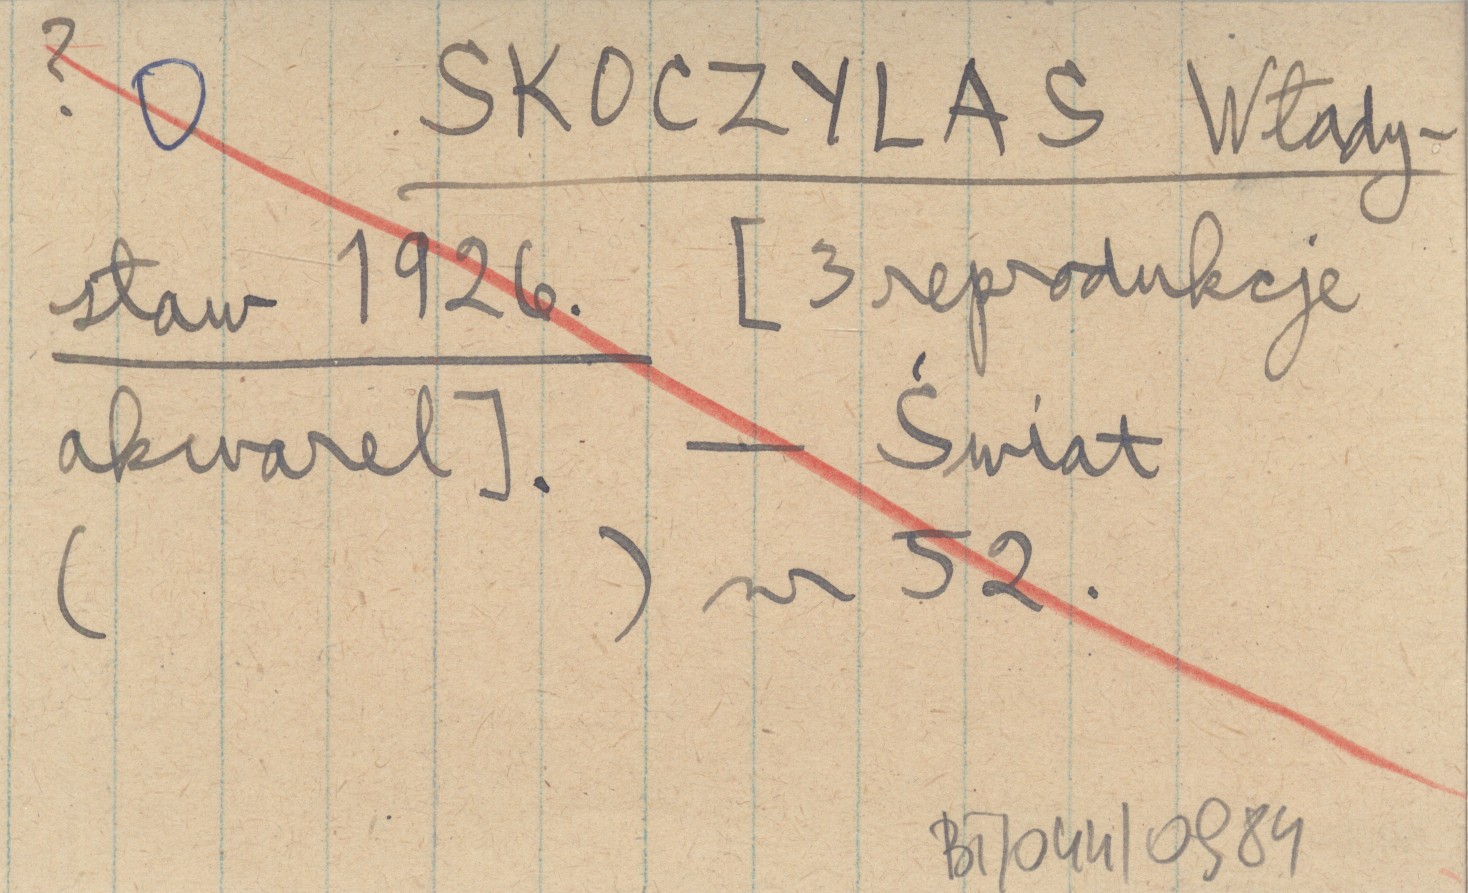 ? O SKOCZYLAS Włady-
sław 1926. [3 reprodukcje
akwarel]. — Świat
( ) nr 52.
BI/044/0984